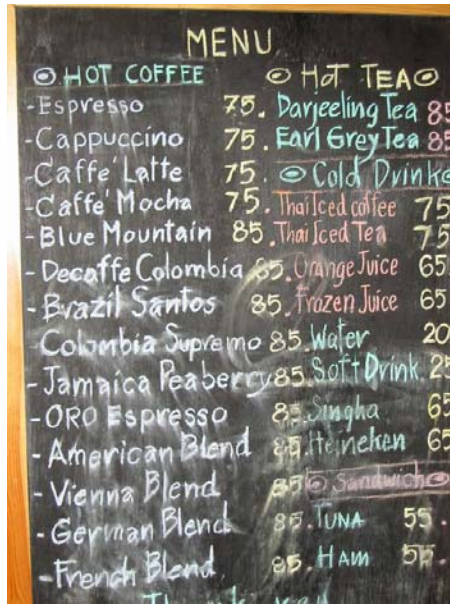 MENU
HOT COFFEE
-Espresso 75.
-Cappuccino 75.
-Caffe' Latte 75.
-Caffe' Mocha 75.
-Blue Mountain 85.
-Decaffe Colombia 85.
-Brazil Santos 85.
Colombia Supremo 85.
-Jamaica Peaberry 85.
-ORO Espresso 85.
-American Blend 85.
-Vienna Blend 85
-German Blend 85.
-French Blend 85.
HOT TEA
Darjeeling Tea 85
Earl Grey Tea 85
Cold Drinke
Thai Iced coffee 75
Thai Iced Tea 75
Orange Juice 65.
Frozen Juice 65
Water 20
Soft Drink 25
Singha 65
Heineken 65
Sandwich
TUNA 55.
HAM 55.